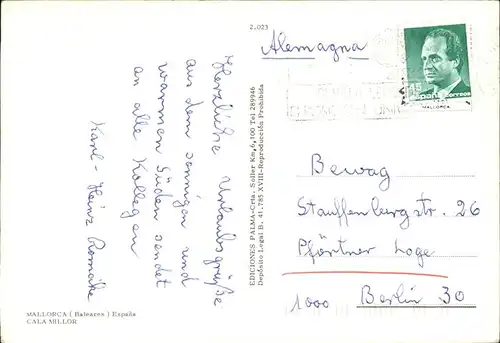 2.023
Alemagna
Herzliche Urlaubsgrüße
aus dem sonnigen und
warmen Süden sendet
an alle Kollegen
Karl-Heinz
EDICIONES PALMA-Crta. Soller Km, 6,100 Tel 289946
Depósito Legal B. 41.785 XVIII-Reproducción Prohibida
correos
MALLORCA
Bewag
Stauffenburgstr. 26
Pförtner Loge
1000 Berlin 30
MALLORCA ( Baleares ) España
CALA MILLOR